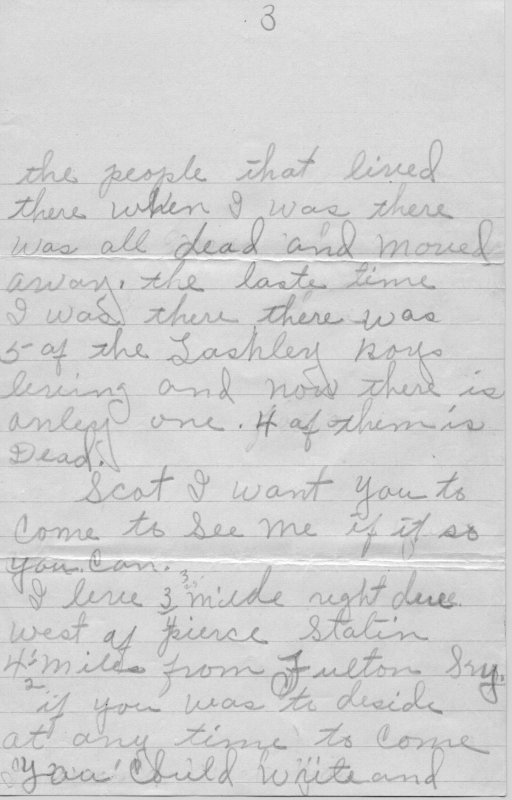 3
the people that lived
there when I was there
was all dead and moved
away. the laste time
I was there there was
5 of the Lashley Boys
leving and now there is
onley one. 4 of them is
Dead.
Scot I want you to
come to See me if it so
you can.
I leve 3 milde right due
west of pierce Statin
4 1/2 miles from Fulton Sry.
if you was to deside
at any time to come
you Could write and